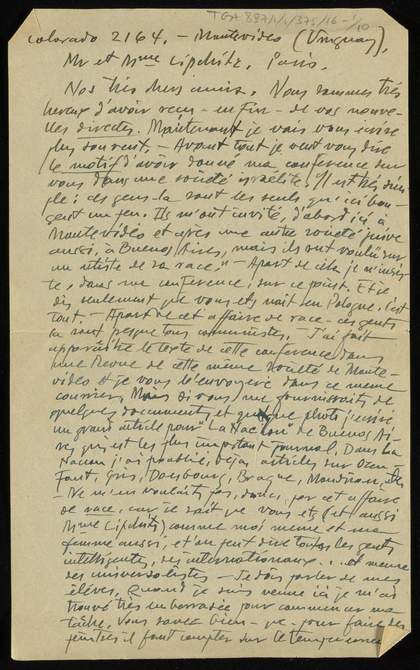 TGA 897/1/375/16-1/10
Colorado 2164. — Montevideo (Uruguay),
Mr et Mme Lipchitz, Paris.
Nos très chers amis. Nous sommes très
hereux d'avoir reçu - enfin - de vos nouve-
lles directes. Maintenant je vais vous écrire
plus souvent. — Avant tout je veut vous dire
le motif d'avoir donné ma conference sur
vous dans une societé israélite. Il est très sim-
ple: ces gens-la sont les seuls qui ici bou-
gent un peu. Ils m'ont invité, d'abord ici à
Montevideo et après une autre societé juive
aussi, à Buenos Aires, mais ils ont voulu sur
un artiste de sa race." — Apart de cela je n'insis-
te, dans ma conference, sur ce point. Et je
dis seulement que vous ets nait en Pologne, c'est
tout — Apart de cet affaire de race - ces gents-
la sont presque tous comunistes. — J'ai fait
apparaitre le texte de cette conference dans
une Revue de cette même societé de Monte-
video et je vous l'envoyerai dans ce meme
courrier. Si vous me fournissais de
quelques documents et quelque photo j'ecrirai
un grand article pour "La Nacion" de Buenos Ai-
res qui est les plus important journal. Dans La
Nacion j'ai poublié, déja, articles sur Ozen-
fant, Gris, Doesbourg, Braque, Mondrian, etc
— Ne m'en voulaits pas, donc, par cet affaire
de race, car je sait que vous ets (et aussi
Mme Lipchitz) comme moi meme et ma
femme aussi, et on peut dire toutes les gents
intelligentes, des internationaux ... et meme
des universalistes — Je dois parler de mes
élèves. Quand je suis venue ici je m'ai
trouvé très embarasée pour commencer ma
tâche. Vous savez bien - que - pour faire des
peintres il faut compter sur le temperamen